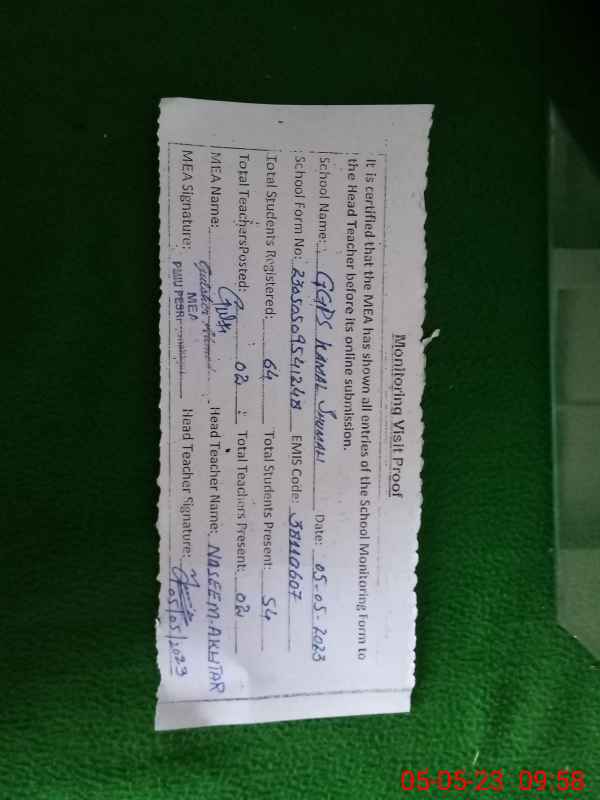 Monitoring Visit Proof
It is certified that the MEA has shown all entries of the School Monitoring Form to
the Head Teacher before its online submission.
School Name: GGPS KAMAL SHUMALI Date: 05-05-2023
School Form No: 2305050954124B EMIS Code: 38110607
Total Students Registered: 64 Total Students Present: 54
Total Teachers Posted: 02 Total Teachers Present: 02
MEA Name: Head Teacher Name: NASEEM AKHTAR
MEA Signature: MEA Head Teacher Signature: 05/05/2023
05-05-23 09:58